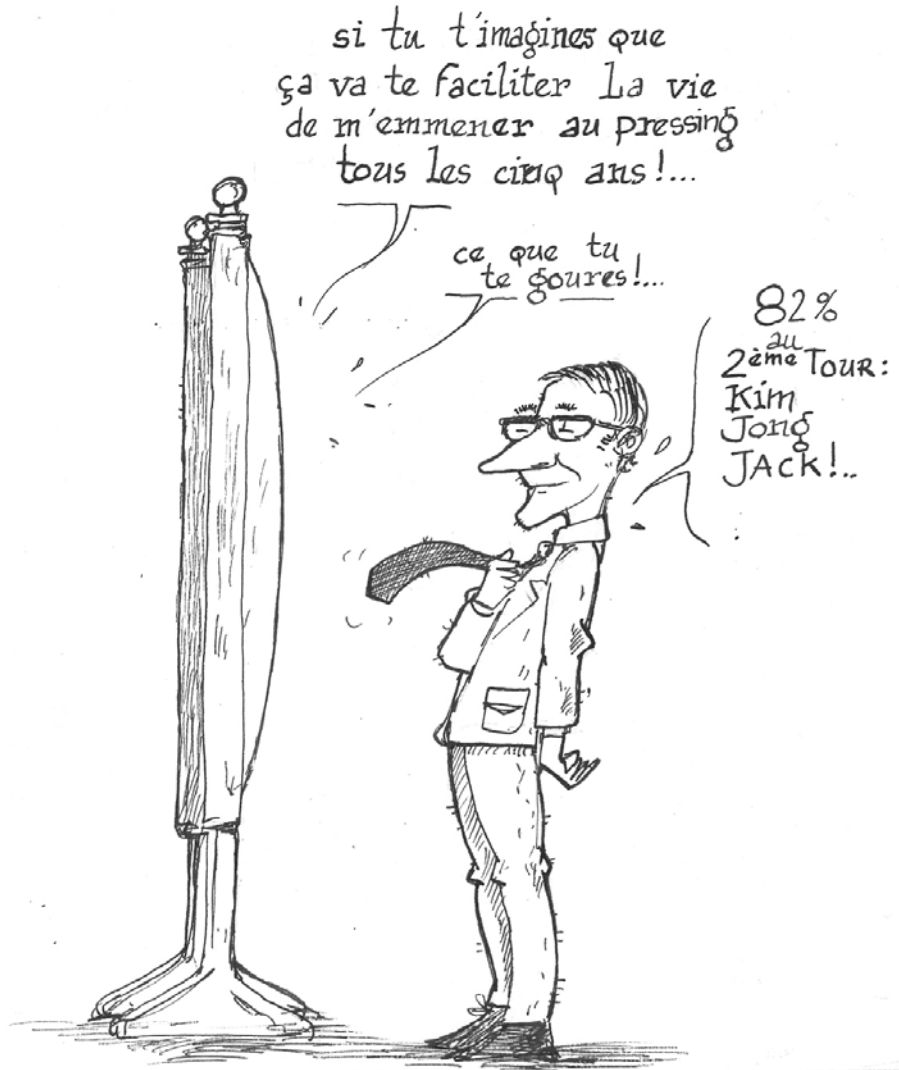 si tu t'imagines que
ça va te faciliter la vie
de m'emmener au pressing
tous les cinq ans!...
ce que tu
te goures!...
82%
au
2ème TOUR:
Kim
Jong
JACK!..